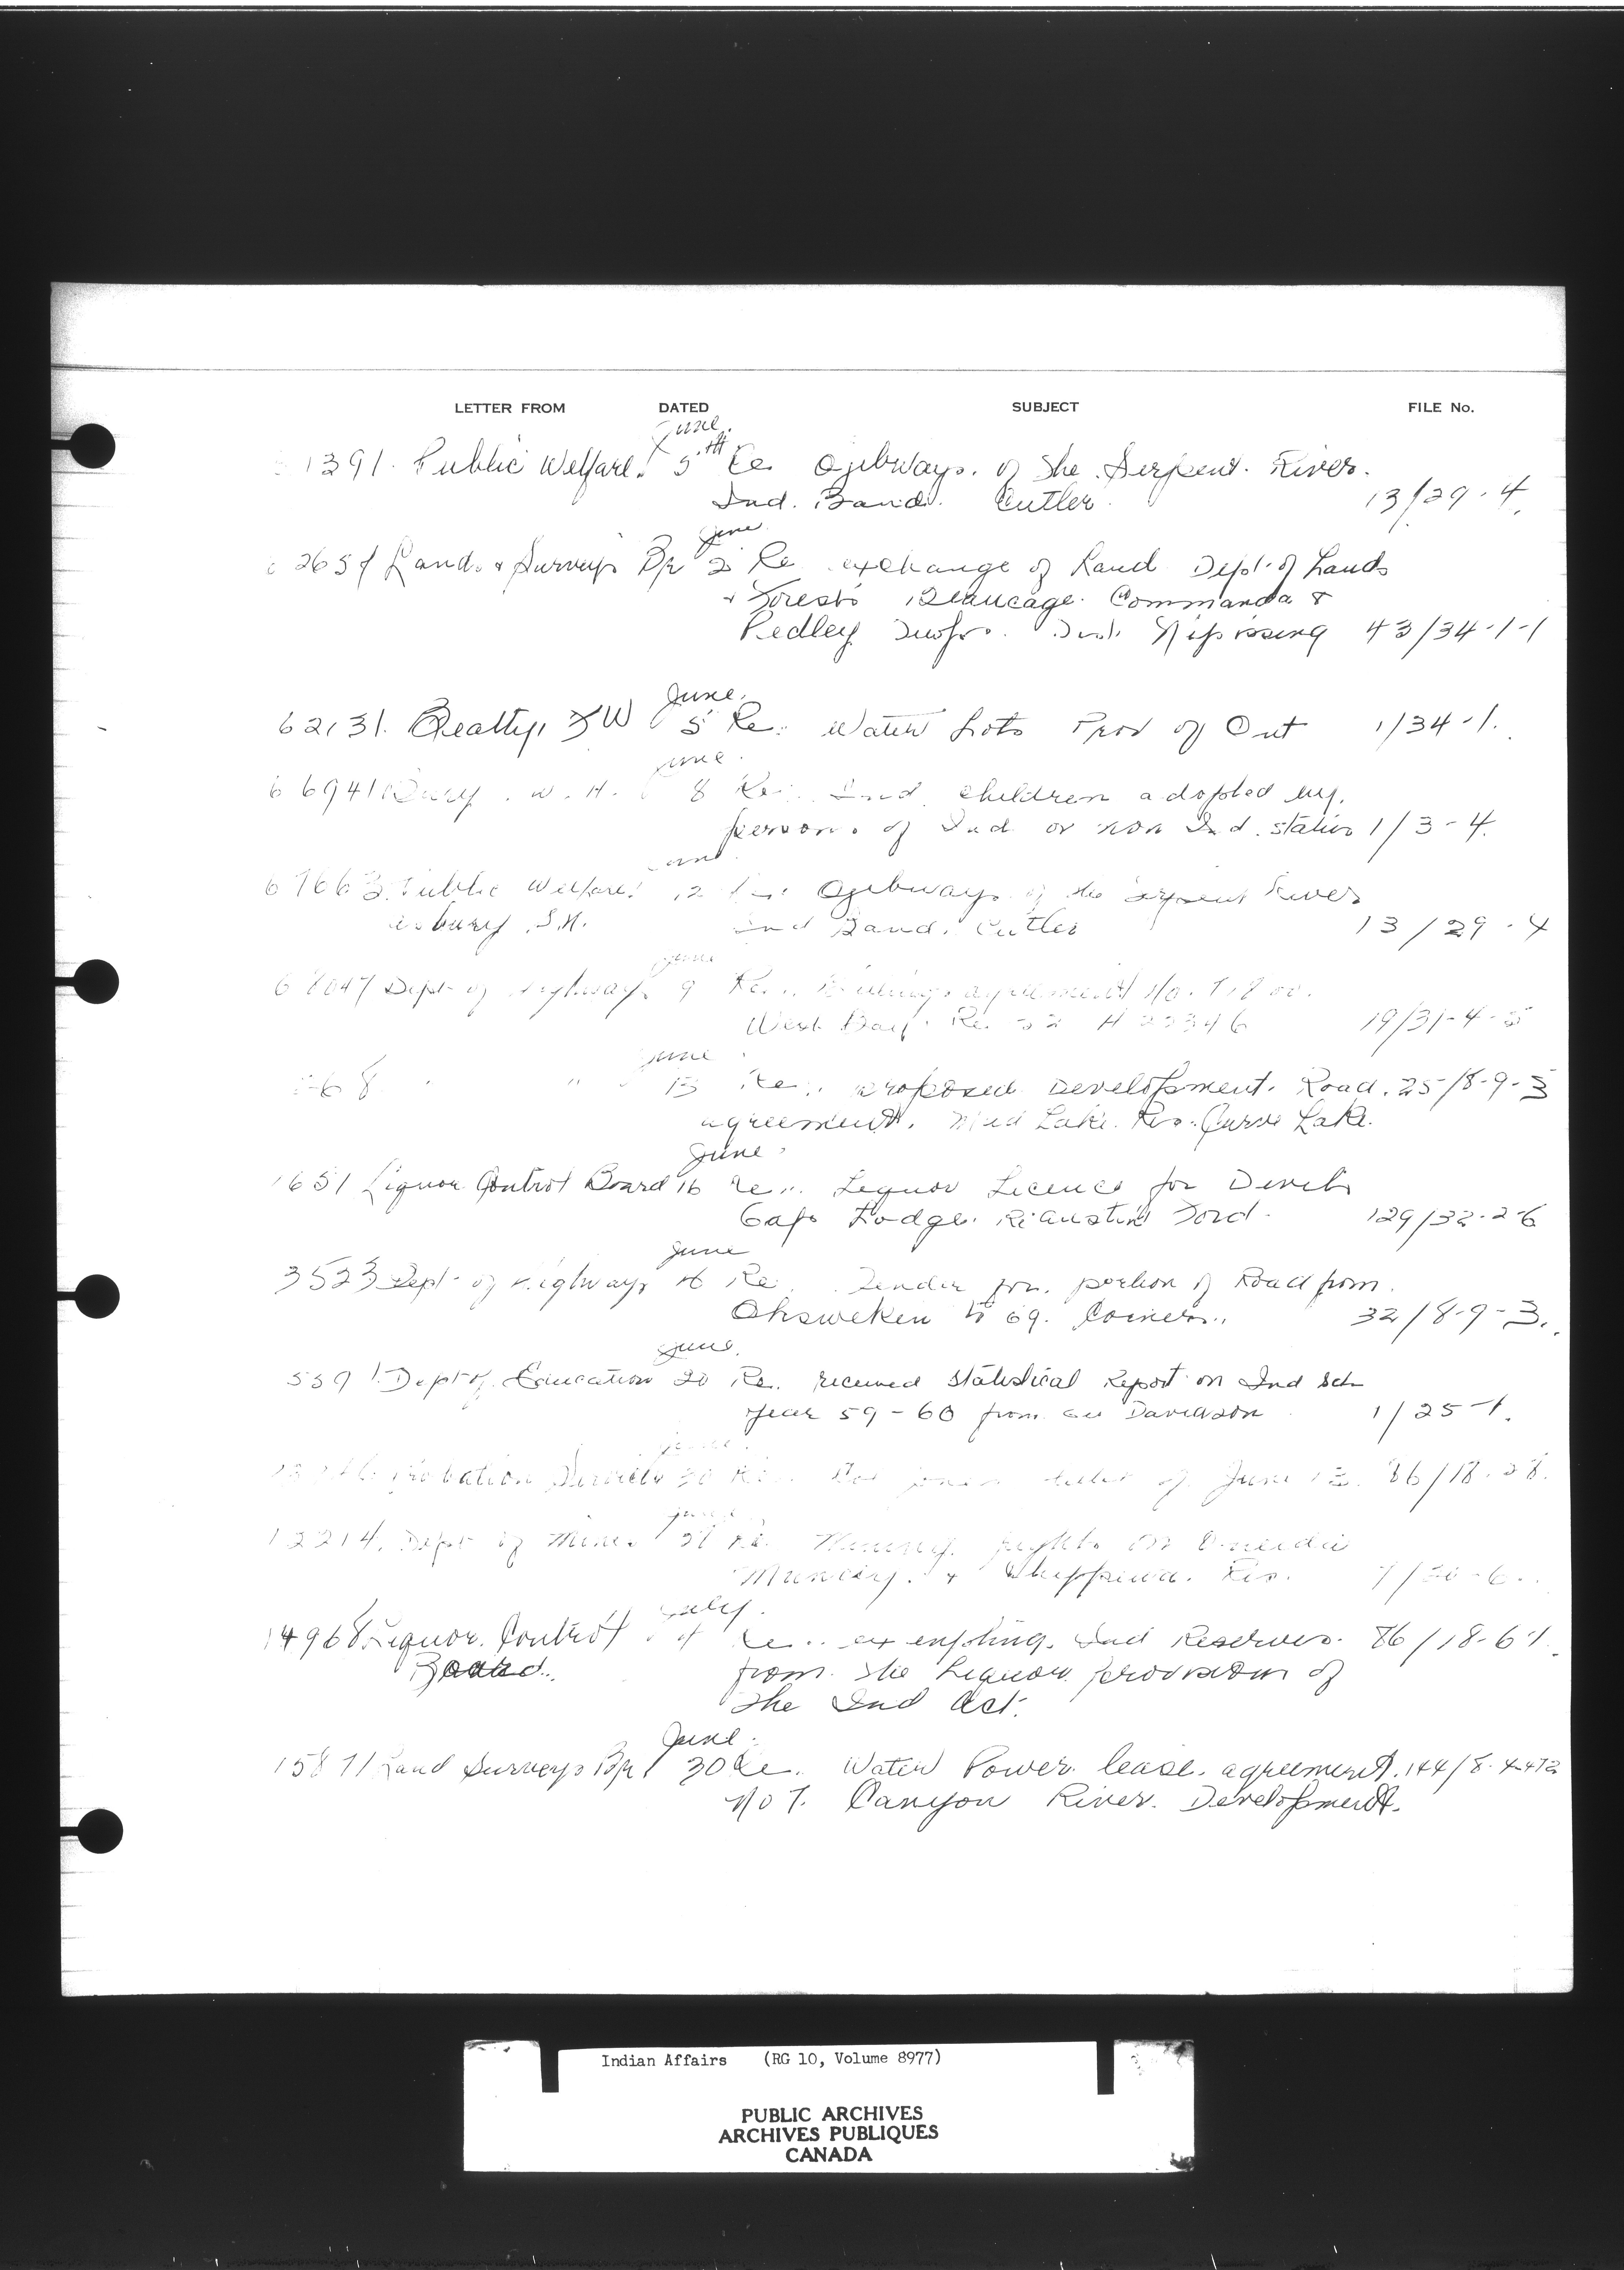 LETTER FROM DATED SUBJECT FILE No.
June
1391. Public Welfare. 5th Re Ojibways. of the Serpent. River.
Ind. Band. Cutler. 13/29-4
June
Land. & Surveys Br 2 Re exchange of Land Dept. of Lands
& Forests Beaucage. Commanda &
Pedley Twps. Nipissing 43/34-1-1
June.
62131. Beatty, W 5 Re. Water Lots Prov of Ont 1/34-1.
June.
66941 W. H. 8 Re. Ind. children adopted by.
persons of Ind or non Ind. status 1/3-4.
67663. Public Welfare. 12 Ojibways of the Serpent River
S.H. Ind Band. Cutler 13/29-4
June
Dept of Highways 9 Re. agreement No.
West Bay. 19/31-4-5
June
68 " 13 Re. proposed Development. Road. 25/8-9-3
agreement. Mud Lake. Res. Curve Lake.
June
1651 Liquor Control Board 16 Re. Liquor Licence for Devils
Gap Lodge. 129/32-2-6
June
3523 Dept of Highways 16 Re. Tender for. portion of Road from.
Ohsweken to 69. Corners. 32/8-9-3.
June.
Dept of. Education 20 Re. received statistical Report on Ind Sch
year 59-60 from Davidson 1/25-1.
June.
Probation Services 20 Re. letter of. June 13. 86/18-28.
June
12214. Dept of Mines Re. Mining. rights on Oneida
Muncey. & Chippewa. Res. 7/30-6.
July.
14968 Liquor. Control Re. exempting. Ind Reserves. 86/18-6-1
Board. from. the Liquor provisions of
the Ind Act.
June.
15871 Land Surveys Br 30 Re. Water Power. lease. agreement.
No 7. Canyon River. Development.
Indian Affairs (RG 10, Volume 8977)
PUBLIC ARCHIVES
ARCHIVES PUBLIQUES
CANADA